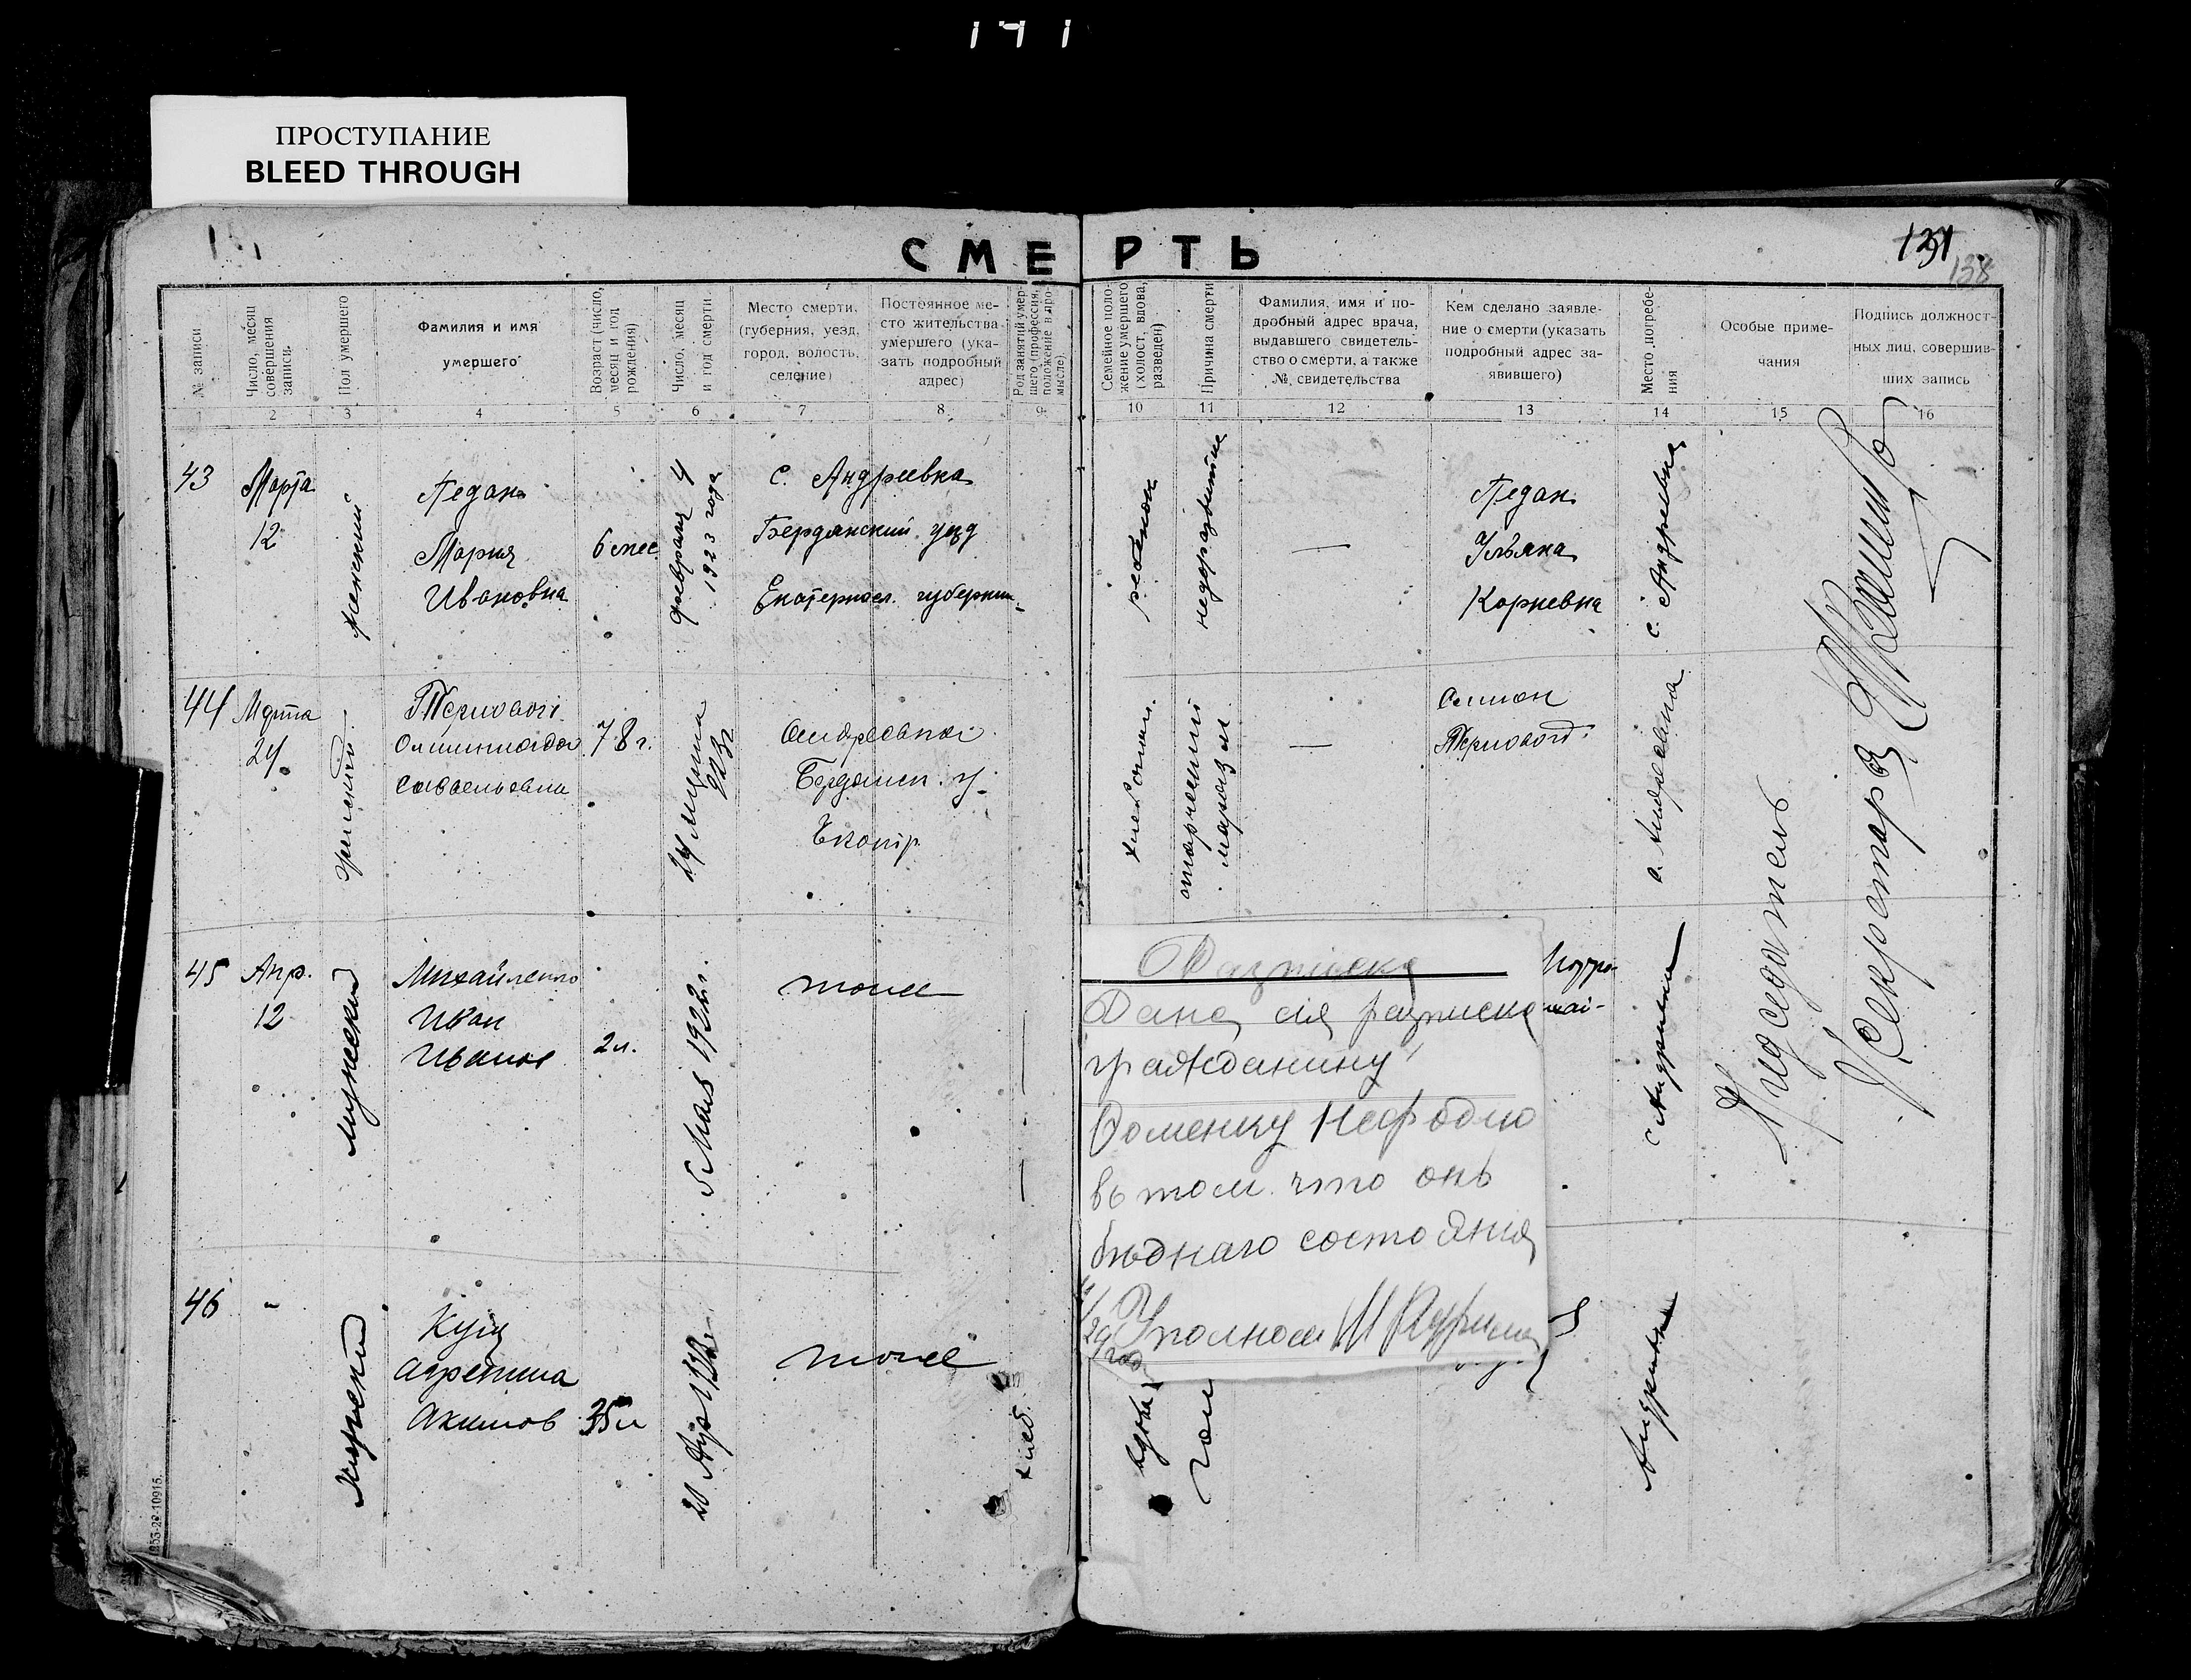 141
ПРОСТУПАНИЕ
BLEED THROUGH
СМЕРТЬ
131
138
№ записи
Число, месяц совершения записи.
Пол умершего
Фамилия и имя
умершего
Возраст (число, месяц и год рождения)
Число, месяц и год смерти.
Место смерти, (губерния, уезд, город, волость, селение)
Постоянное место жительства умершего (указать подробный адрес)
Род занятий умершего (профессия, положение в промысле).
Семейное положение умершего (холост, вдова, разведен)
Причина смерти
Фамилия, имя и подробный адрес врача, выдавшего свидетельство о смерти, а также № свидетельства
Кем сделано заявление о смерти (указать подробный адрес заявившего)
Место погребения
Особые примечания
Подпись должностных лиц, совершивших запись
1 2 3 4 5 6 7 8 9 10 11 12 13 14 15 16
43
Марта
12
женский
Педан
Мария
Ивановна
6 мес
февраля 4
1923 года
с. Андреевка
Бердянский уезд
Екатеринсл. губернии
ребенок
недоразвитие
—
Педан
Ульяна
Корневна
с. Андреевка
44
Марта
24
женский
Терновой
78 г.
24 марта
923 г
Андреевка
Бердянск. у.
Екатір
—
Семен
Терновой
с. Андреевка
45
Апр.
12
мужеский
Михайленко
Иван
Иванов
2 л.
5 Мая 1922 г.
тоже
с Андреевка
46
"
Мужески
Куц
Акимов
35 л
20 Апр
тоже
хлеб.
вдова
Андреевка
Секретарь
Разписка
Дана сия разписка
гражданину
Фоменку Нефодию
въ том что онъ
бѣднаго состояния
Уполном